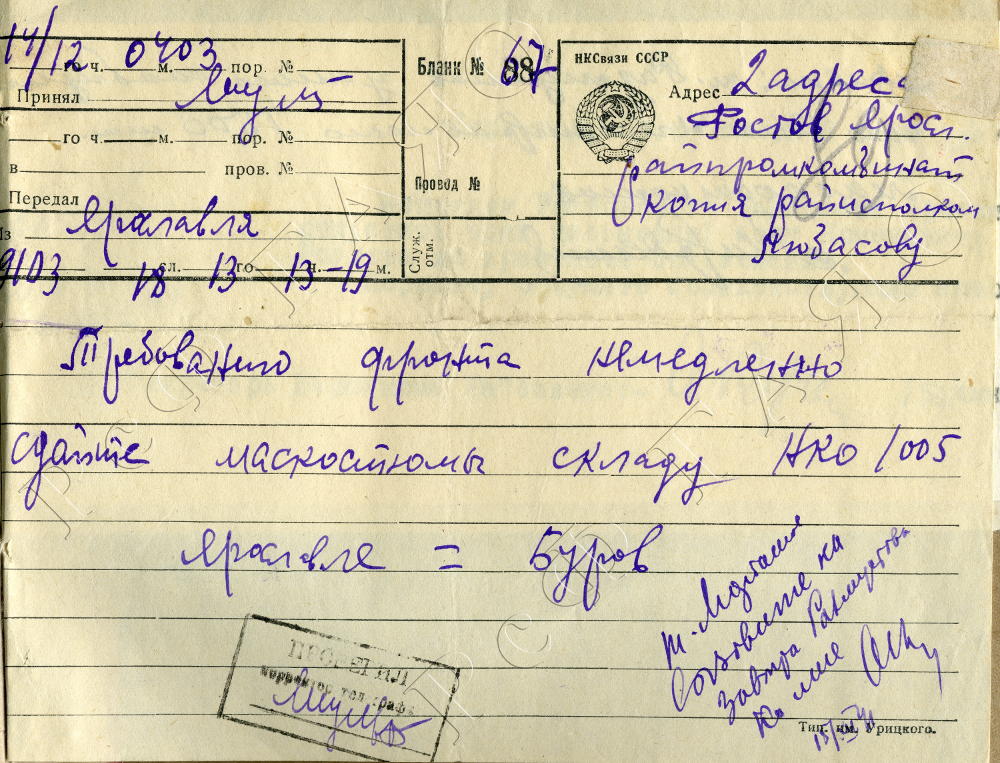 14/12 го ч. 0403 м. пор. №
Принял
го ч. м. пор. №
в пров. №
Передал
Из Ярославля
9103 сл. 18 13 го 13 ч. -19 м.
Бланк № 67
Провод №
Служ. отм.
НКСвязи СССР
Адрес 2 адреса
Ростов Яросл.
райпромкомбинат
копия райисполком
Требованию фронта немедленно
сдайте маскостюмы складу НКО 1005
Ярославле = Буров
ПРОВЕРИЛ
Корректор телеграфа
т.
Созовите на
завтра
ко мне
Тип. им. Урицкого.